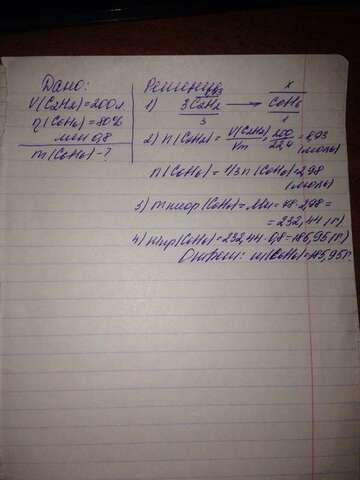 Дано:
V(C2H2)=200л
η(C6H6)=80%
или 0,8
m(C6H6)-?
Решение
8,93 x
1) 3C2H2 → C6H6
3 1
2) n(C2H2)= V(C2H2)/Vm = 200/22,4 = 8,93 (моль)
n(C6H6)=1/3 n(C2H2)=2,98 (моль)
3) mтеор(C6H6)=Mn=78·2,98=
=232,44(г)
4) mпр(C6H6)=232,44·0,8=185,95(г)
Ответ: m(C6H6)=185,95г